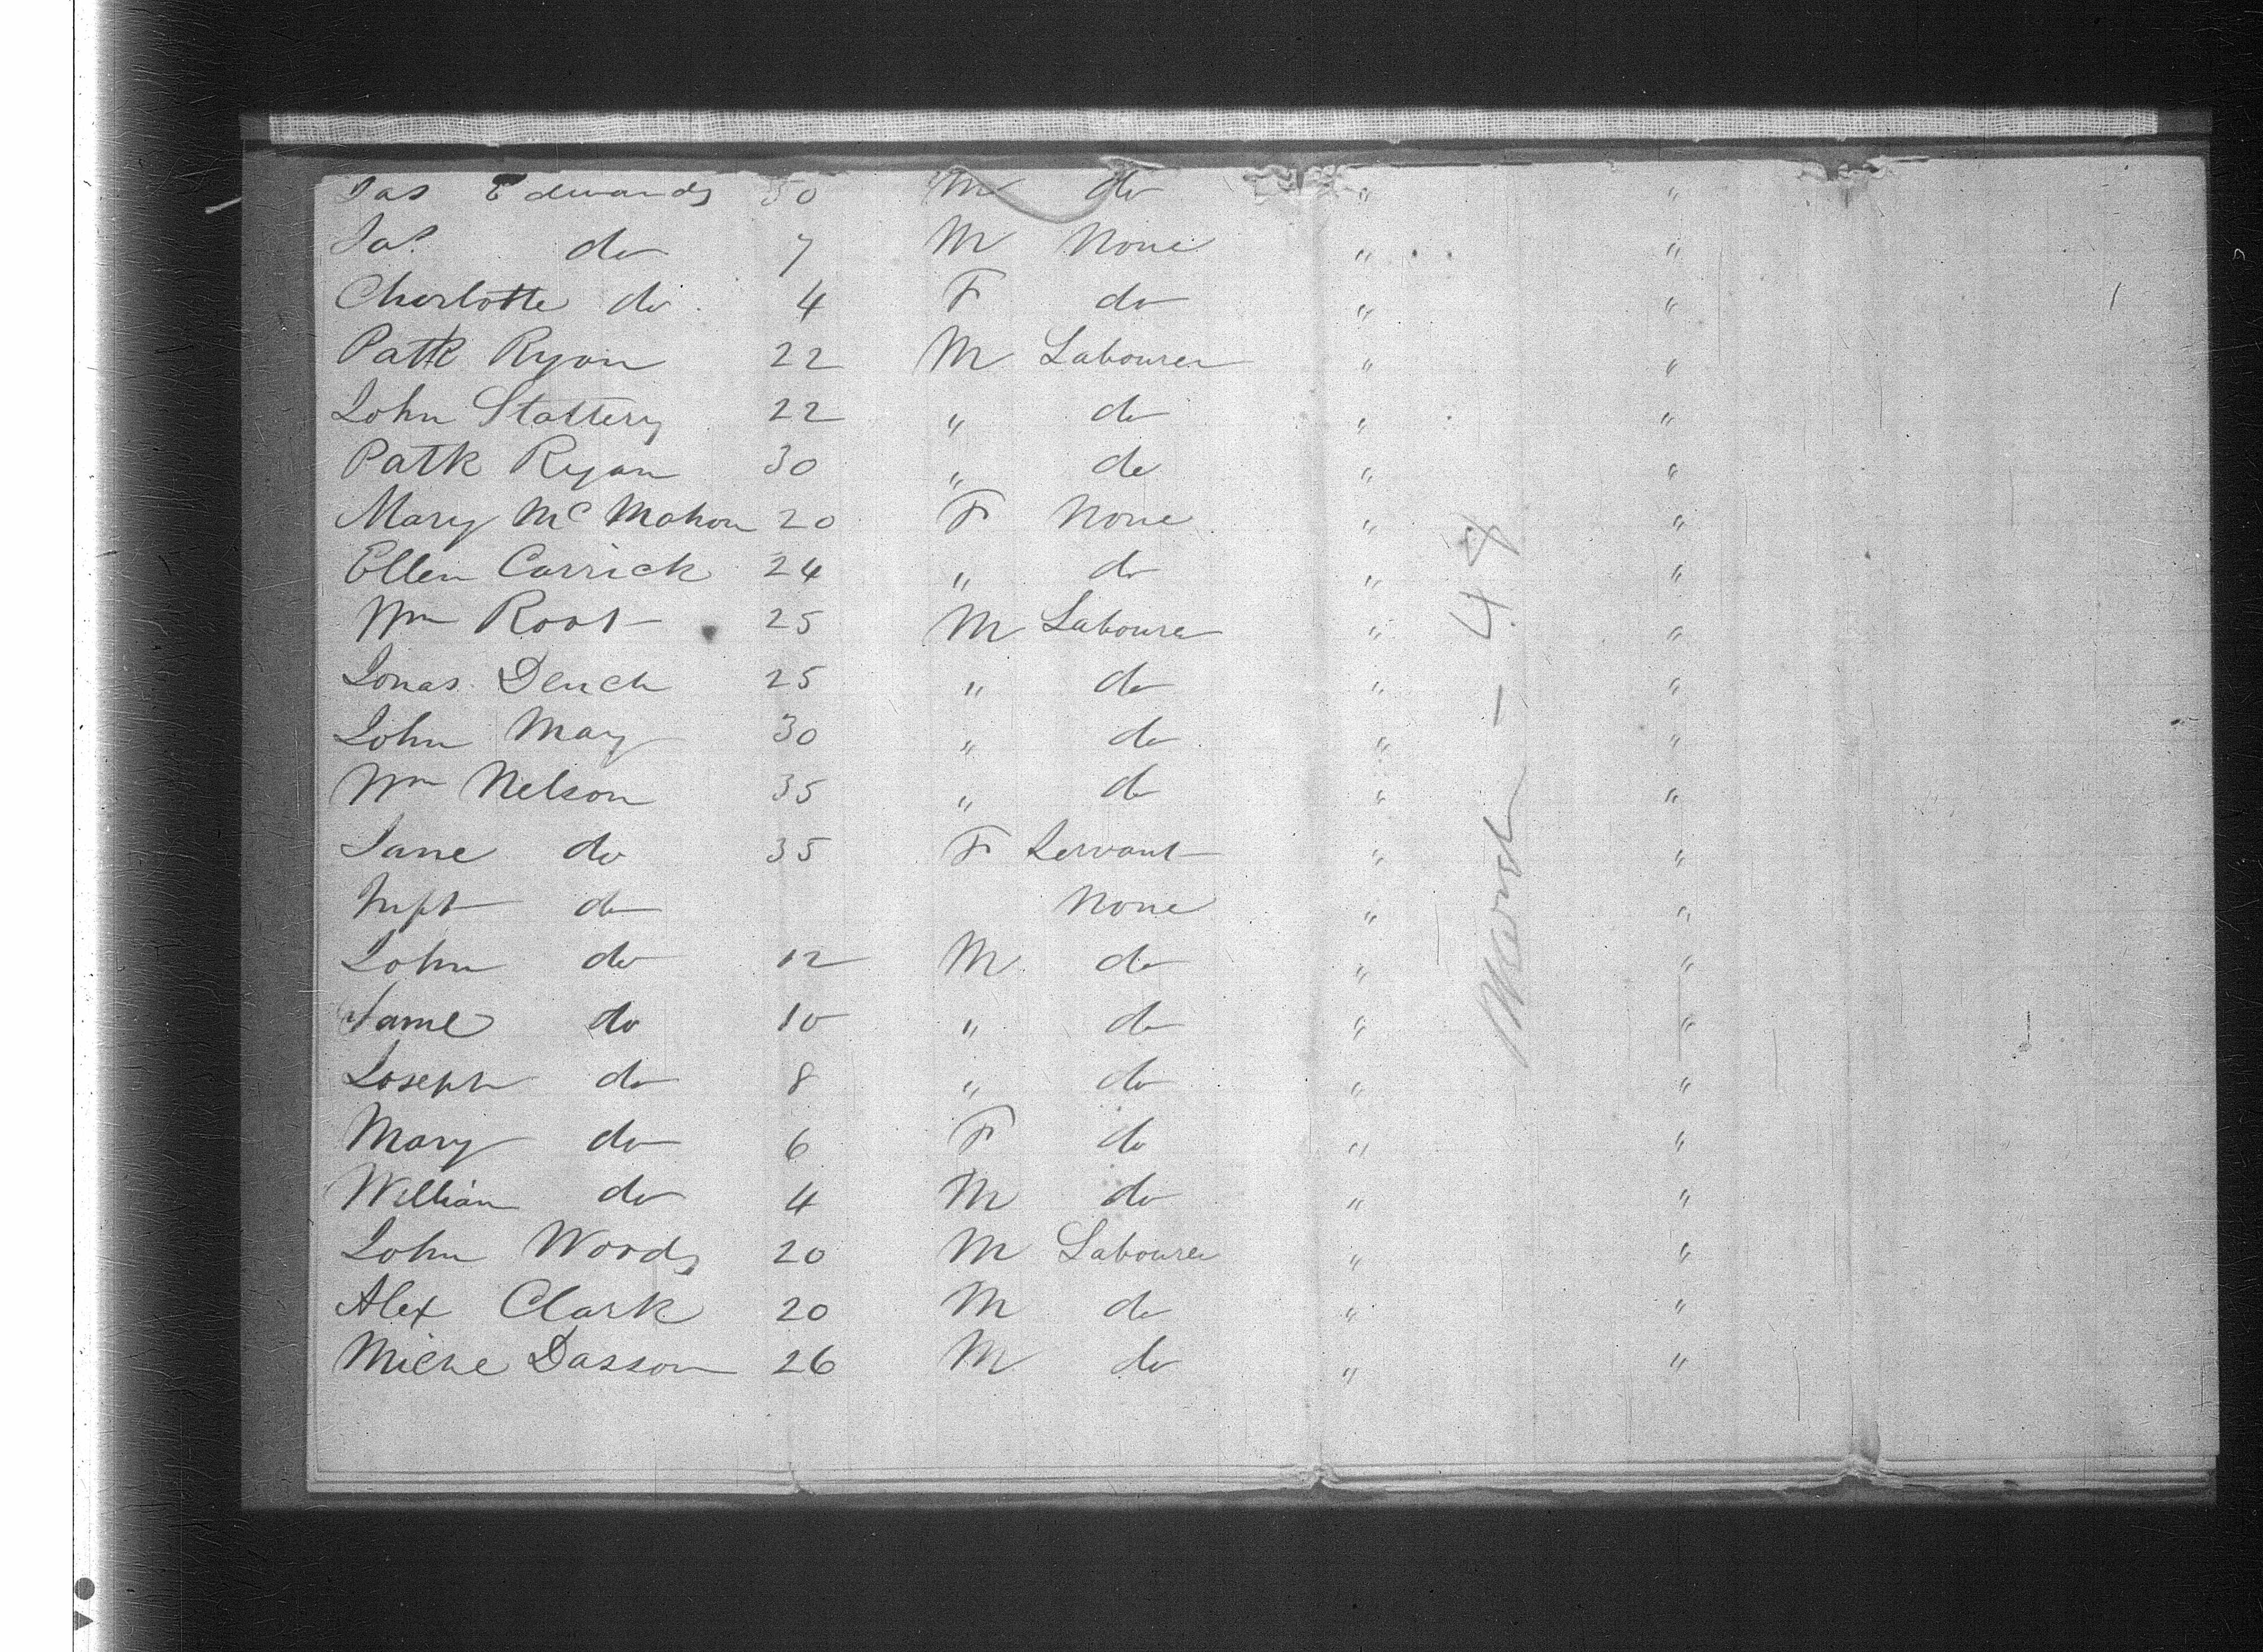 Jas Edwards 50 M do " "
Jas do 7 M None " "
Charlotte do 4 F do " "
Patk Ryan 22 M Labourer " "
John Slattery 22 " do " "
Patk Ryan 30 " do " "
Mary McMahon 20 F None " "
Ellen Carrick 24 " do " "
Wm Root 25 M Labourer " "
Jonas Dench 25 " do " "
John May 30 " do " "
Wm Nelson 35 " do " "
Jane do 35 F Servant " "
Inft do None " "
John do 12 M do " "
do 10 " do " "
Joseph do 8 " do " "
Mary do 6 F do " "
William do 4 M do " "
John Woods 20 M Labourer " "
Alex Clark 20 M do " "
Miche Dasson 26 M do " "